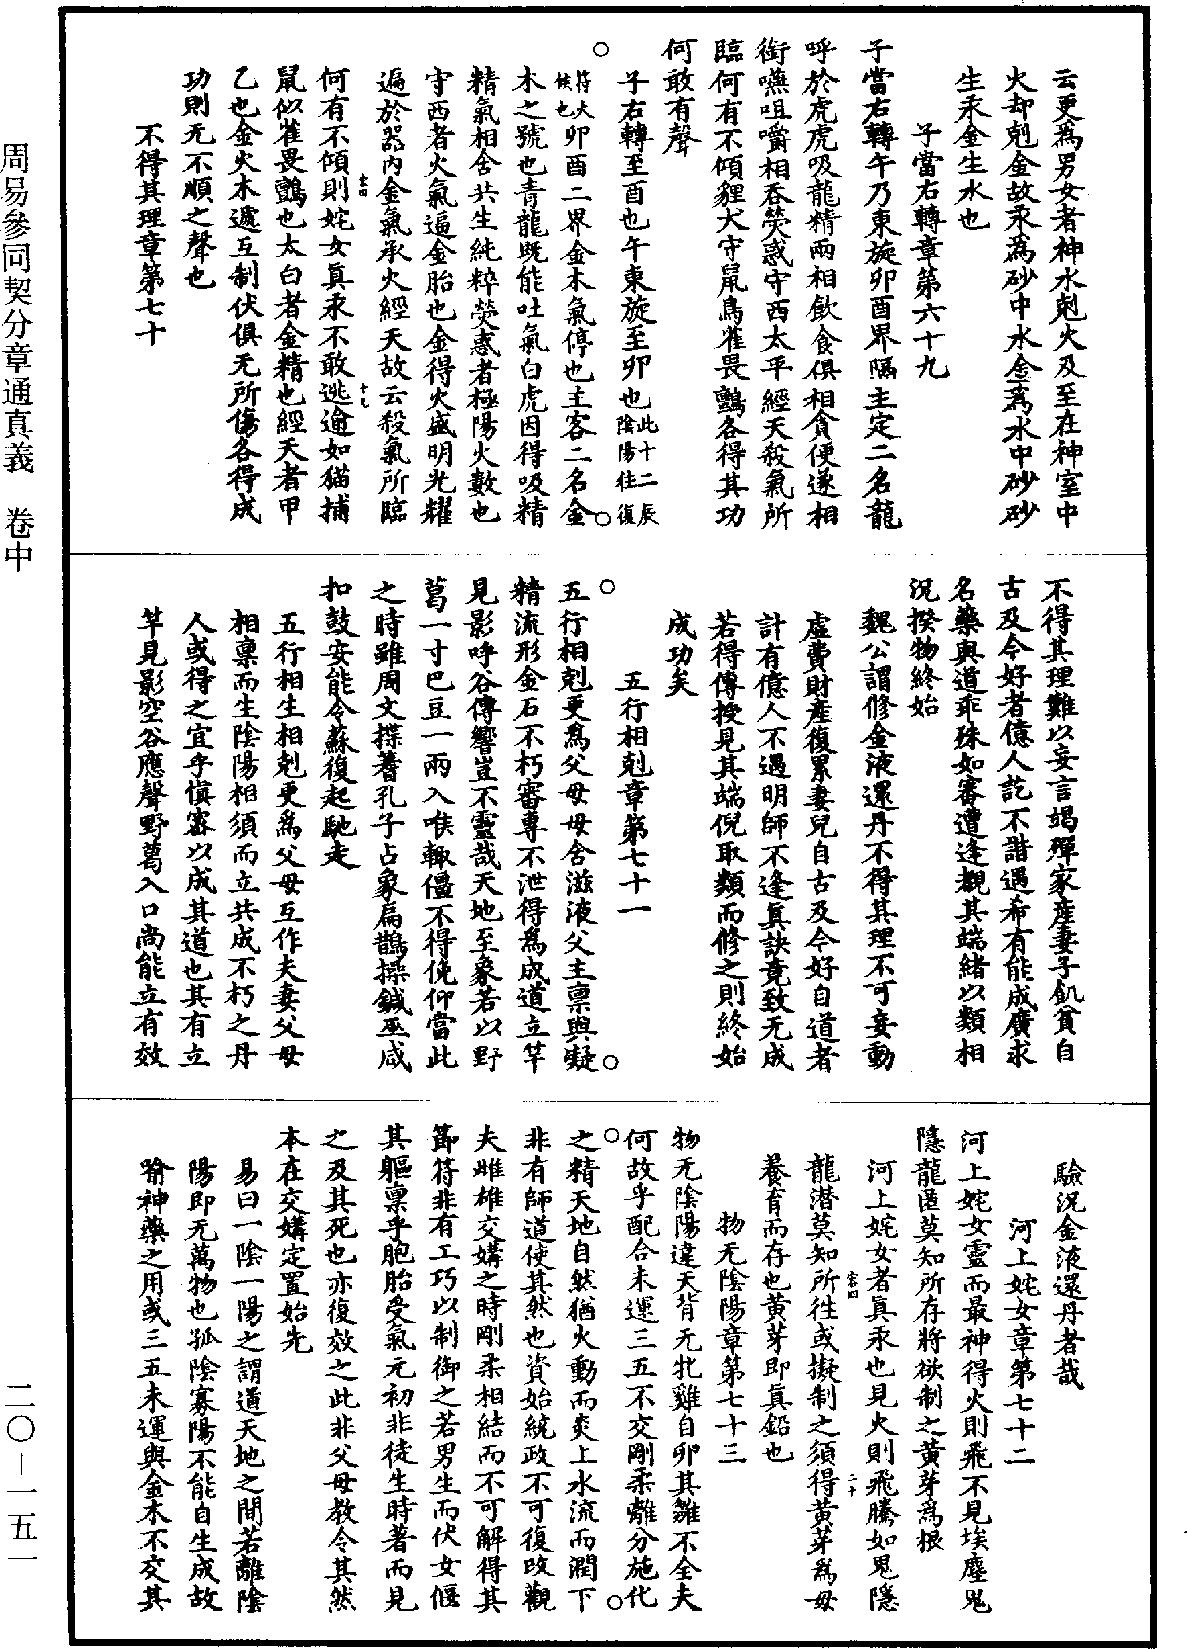 周易參同契分章通真義　卷中
二〇—一五一
云更爲男女者神水剋火及至在神室中
火却剋金故汞爲砂中水金爲水中砂砂
生汞金生水也
子當右轉章第六十九
子當右轉午乃東旋卯酉界隔主定二名龍
呼於虎虎吸龍精兩相飲食俱相貪便遂相
銜嚥咀嚼相吞熒惑守西太平經天殺氣所
臨何有不傾貍犬守鼠鳥雀畏鸇各得其功
何敢有聲
子右轉至酉也午東旋至卯也此十二辰陰陽往復
符火候也卯酉二界金木氣停也主客二名金
木之號也青龍既能吐氣白虎因得吸精
精氣相含共生純粹熒惑者極陽火數也
守西者火氣逼金胎也金得火盛明光耀
遍於器內金氣承火經天故云殺氣所臨
何有不傾則姹女真汞不敢逃逾如貓捕
鼠似雀畏鸇也太白者金精也經天者甲
乙也金火木遞互制伏俱无所傷各得成
功則无不順之聲也
不得其理章第七十
不得其理難以妄言竭殫家產妻子飢貧自
古及今好者億人訖不諧遇希有能成廣求
名藥與道乖殊如審遭逢覩其端緒以類相
況揆物終始
魏公謂修金液還丹不得其理不可妄動
虛費財產復累妻兒自古及今好自道者
計有億人不遇明師不逢真訣竟致无成
若得傳授見其端倪取類而修之則終始
成功矣
五行相剋章第七十一
五行相剋更爲父母母含滋液父主禀與凝
精流形金石不朽審專不泄得爲成道立竿
見影呼谷傳響豈不靈哉天地至象若以野
葛一寸巴豆一兩入喉輒僵不得俛仰當此
之時雖周文揲蓍孔子占象扁鵲操鍼巫咸
扣鼓安能令蘇復起馳走
五行相生相剋更爲父母互作夫妻父母
相禀而生陰陽相須而立共成不朽之丹
人或得之宜乎慎密以成其道也其有立
竿見影空谷應聲野葛入口尚能立有效
驗況金液還丹者哉
河上姹女章第七十二
河上姹女靈而最神得火則飛不見埃塵鬼
隱龍匿莫知所存將欲制之黃芽爲根
河上姹女者真汞也見火則飛騰如鬼隱
龍潛莫知所往或擬制之須得黃芽爲母
養育而存也黃芽即真鉛也
物无陰陽章第七十三
物无陰陽違天背元牝雞自卵其雛不全夫
何故乎配合未運三五不交剛柔離分施化
之精天地自然猶火動而炎上水流而潤下
非有師道使其然也資始統政不可復改觀
夫雌雄交媾之時剛柔相結而不可解得其
節符非有工巧以制御之若男生而伏女偃
其軀禀乎胞胎受氣元初非徒生時著而見
之及其死也亦復效之此非父母教令其然
本在交媾定置始先
易曰一陰一陽之謂道天地之間若離陰
陽即无萬物也孤陰寡陽不能自生成故
喻神藥之用或三五未運與金木不交其